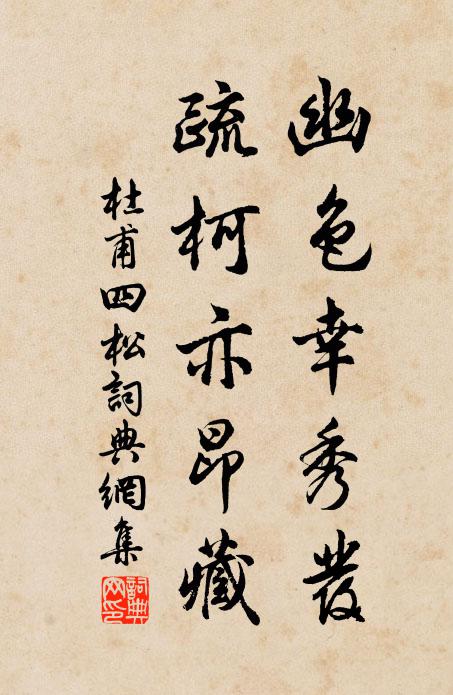 幽色幸秀發
疏柯亦昂藏
杜甫四松詞典網集
詞典网印